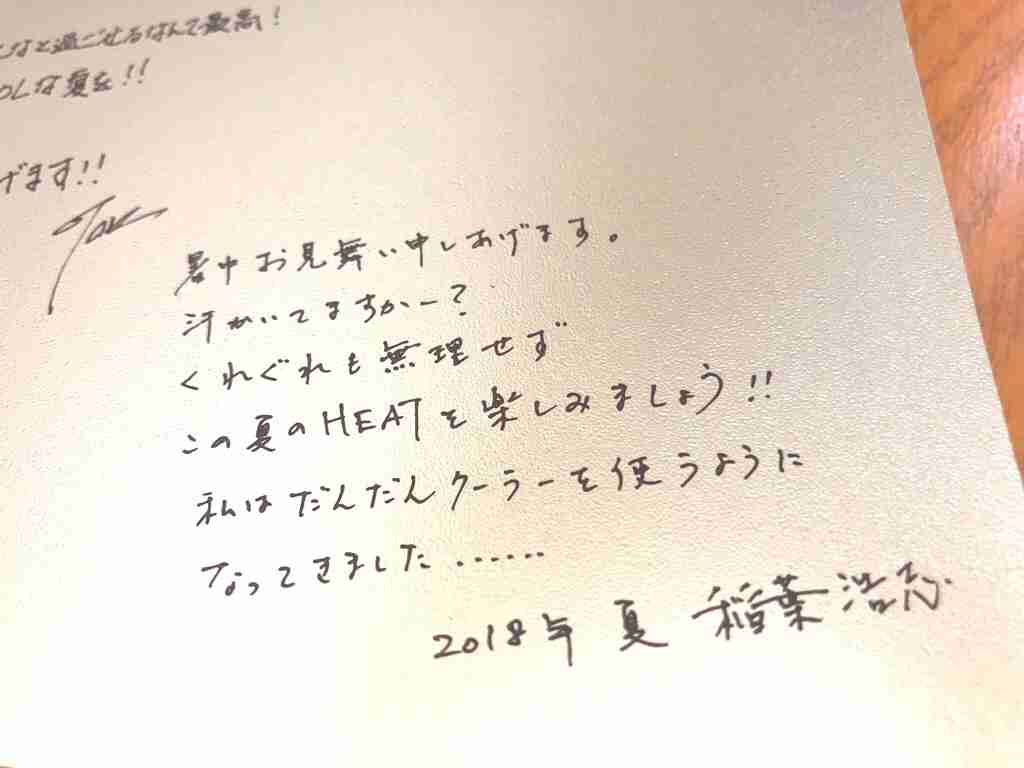 なと過ごせるなんて最高!
な夏を!!
げます!!
Tak
暑中お見舞い申しあげます。
汗かいてますかー?
くれぐれも無理せず
この夏のHEATを楽しみましょう!!
私はだんだんクーラーを使うように
なってきました……
2018年 夏 稲葉浩志